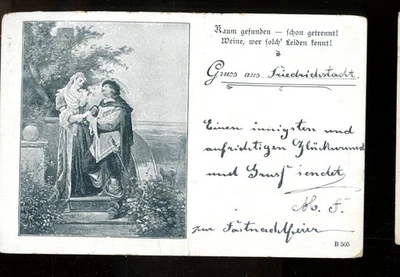 Kaum gefunden — schon getrennt!
Weine, wer solch' Leiden kennt!
Gruss aus Friedrichstadt.
Einen innigsten und
aufrichtigen Glückwunsch
und Gruß sendet
M. F.
zur Fastnachtfeier
B 505